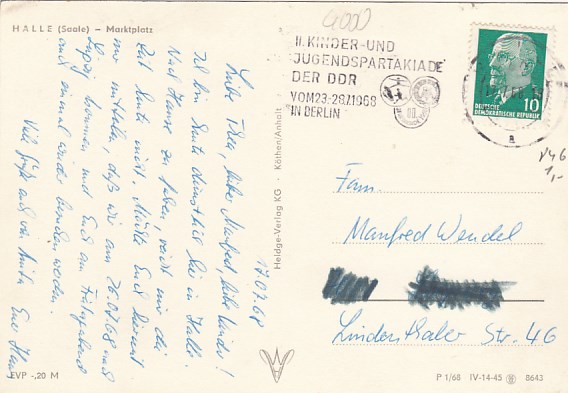 HALLE (Saale) – Marktplatz
17.07.68
Liebe Thea, lieber Manfred, liebe Kinder!
Ich bin heute dienstlich hier in Halle.
Nach Hause zu fahren, reicht mir die
Zeit heute nicht. Möchte Euch hiermit
nur mitteilen, daß wir am 26.07.68 nach
Leipzig kommen und Euch am Freitagabend
auch einmal wieder besuchen werden.
Viele Grüße auch von Anita Euer Hans
EVP -,20 M
Heldge-Verlag KG · Köthen/Anhalt
4000
II. KINDER-UND
JUGENDSPARTAKIADE
DER DDR
VOM 23.-28.7.1968
IN BERLIN
III
10
DEUTSCHE
DEMOKRATISCHE REPUBLIK
a
V46
1,-
Fam.
Manfred Wendel
Lindenthaler Str. 46
P 1/68 IV-14-45 8643